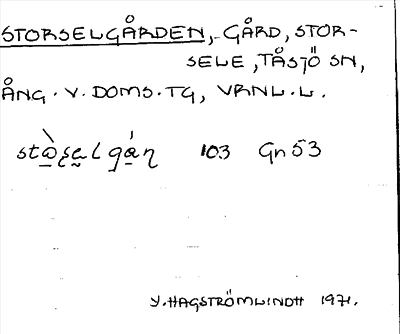 STORSELGÅRDEN, GÅRD, STOR-
SELE, TÅSJÖ SN,
ÅNG. V. DOMS. TG, VRNL. L.
103 Gn 53
Y. HAGSTRÖM LINDH 1971.